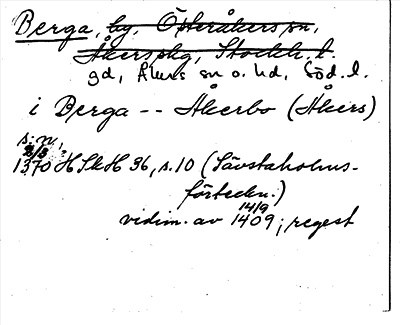 Berga, by, Österåkers sn,
Åkers skg, Stockh. l.
gd, Åkers sn o. hd, Söd. l.
i Berga -- Åkerbo (Åkers)
s. n.,
2/3
1370 HSkH 36, s. 10 (Sävstaholms-
förteckn.)
14/9
vidim. av 1409; regest